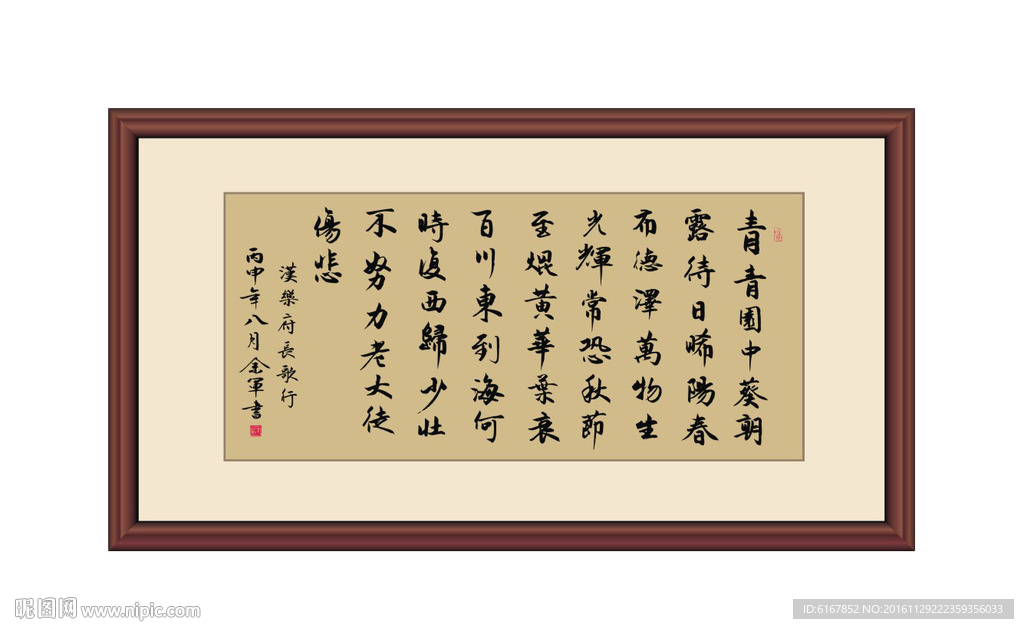 青青園中葵朝
露待日晞陽春
布德澤萬物生
光輝常恐秋節
至焜黃華葉衰
百川東到海何
時復西歸少壯
不努力老大徒
傷悲
漢樂府長歌行
丙申年八月金軍書
昵图网 www.nipic.com
ID:6167852 NO:20161129222359356033